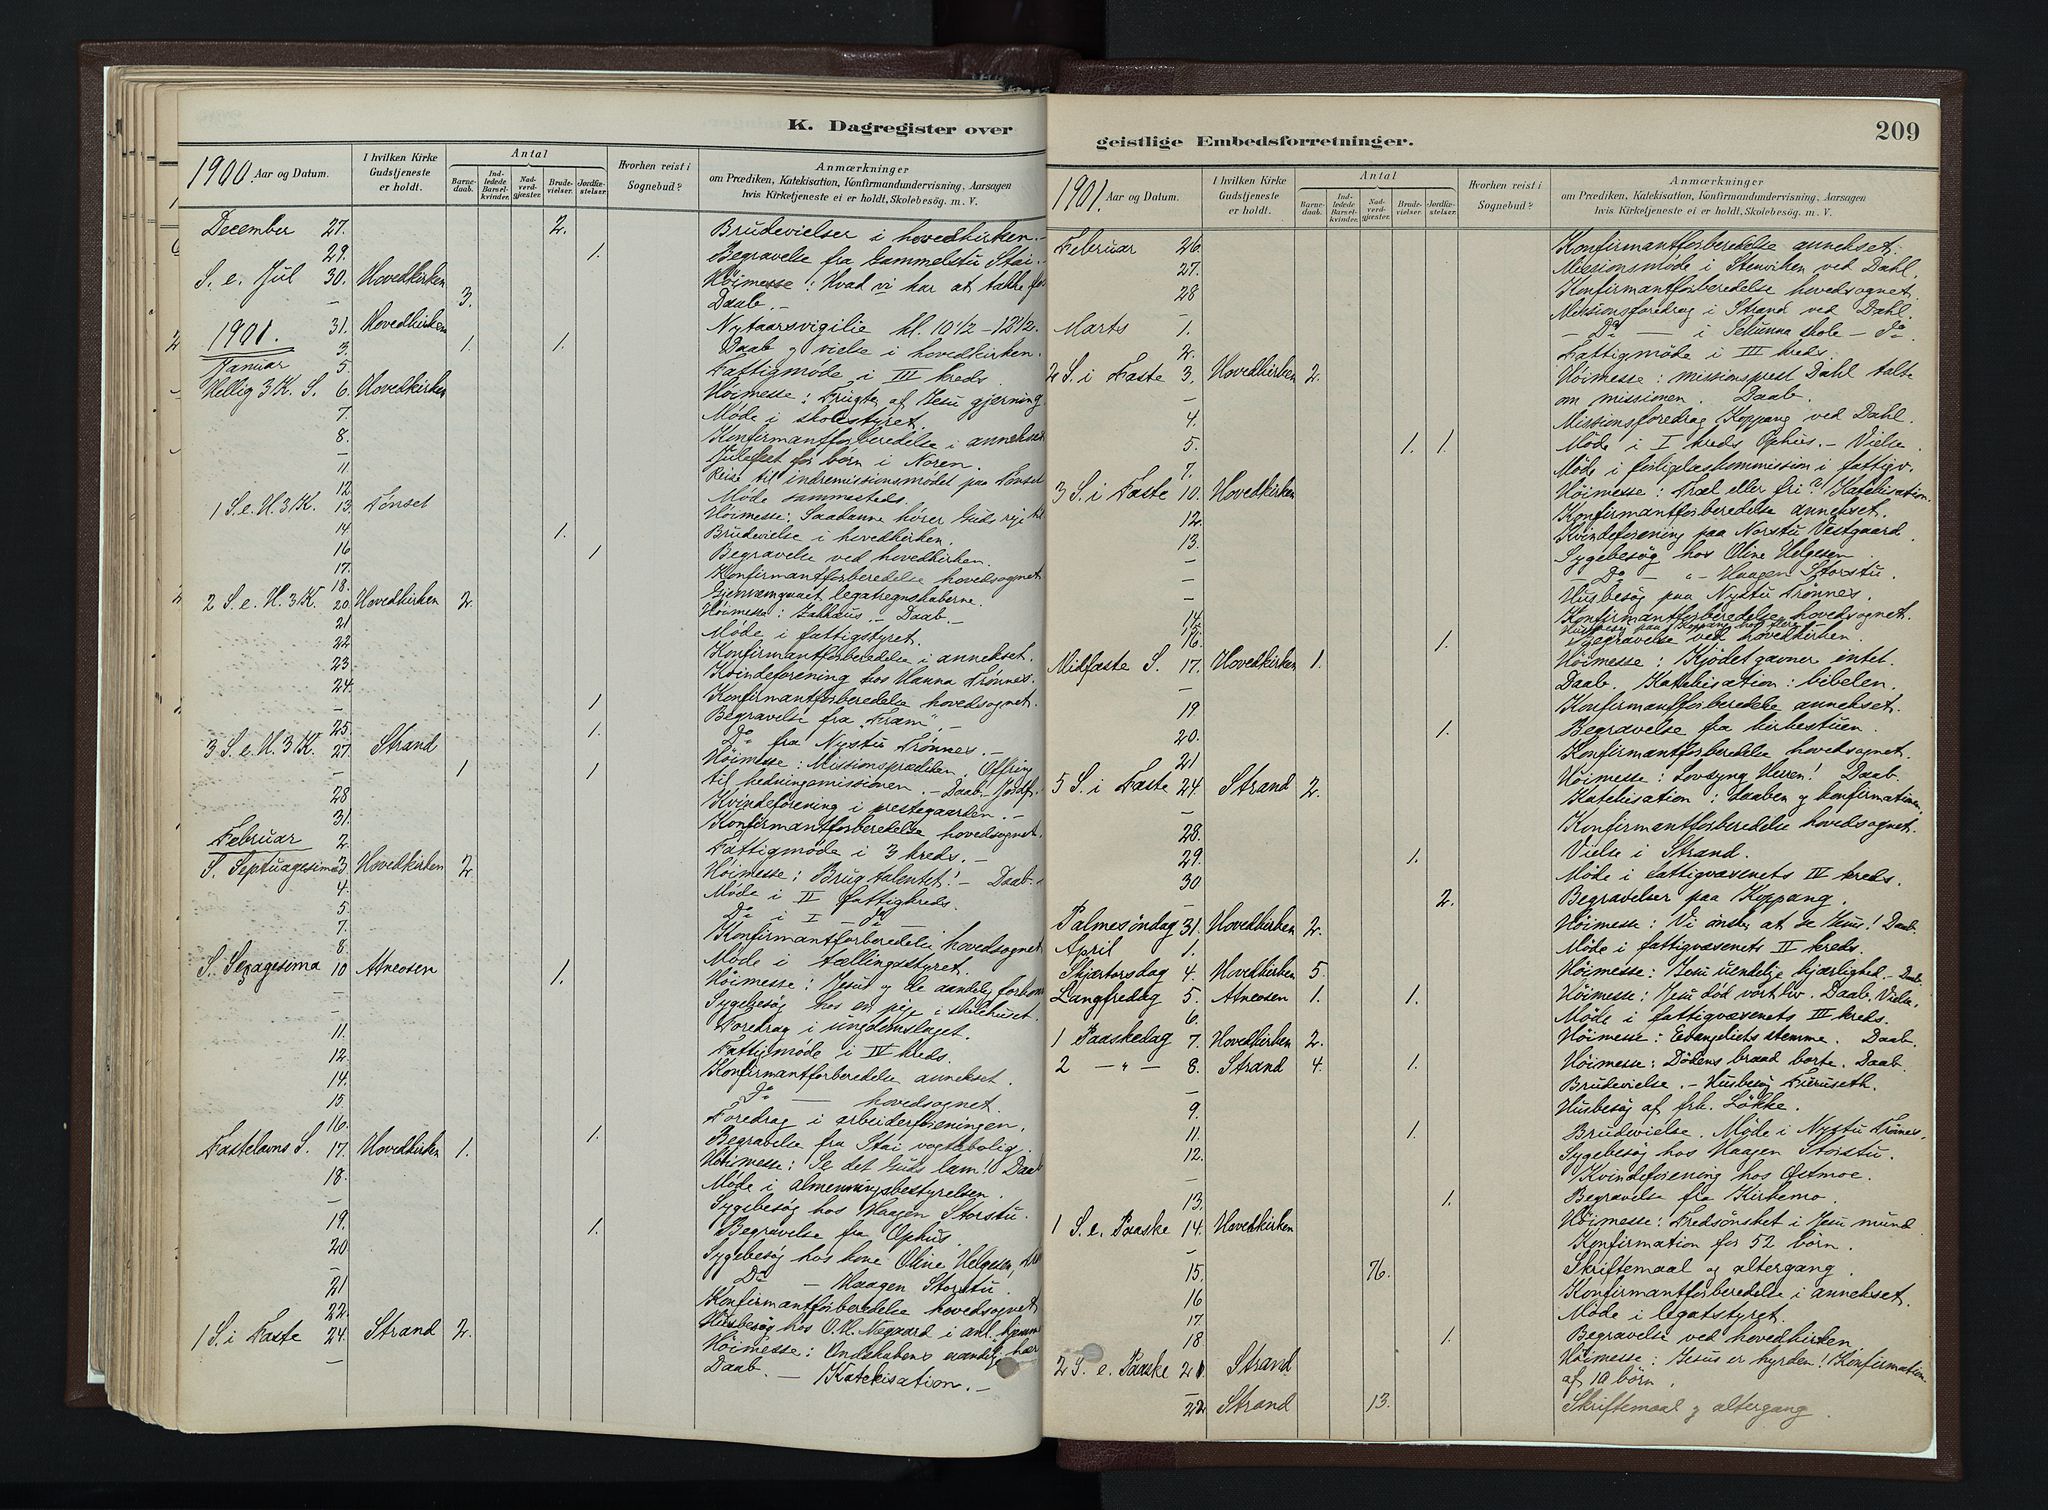 K. Dagregister over
1900. Aar og Datum.
I hvilken Kirke Gudstjeneste er holdt.
Antal
Barnedaab.
Indledede Barselkvinder.
Nadverdgjæster.
Brudevielser.
Jordfæstelser.
Hvorhen reist i Sognebud?
Anmærkninger
om Prædiken, Katekisation, Konfirmandundervisning, Aarsagen
hvis Kirketjeneste ei er holdt, Skolebesøg. m. V.
December 27. 2. Brudevielser i hovedkirken.
29. 1. Begravelse fra Gammelstu Stai.
S. e. Jul 30. Hovedkirken Høimesse: Hvad vi har at takke for
— 3. Daab. —
31. Hovedkirken Nytaarsvigilie kl. 10½ – 12½.
1901.
Januar 3. 1. 1. Daab og vielse i hovedkirken.
5. Fattigmøde i III kreds.
Hellig 3 K. S. 6. Hovedkirken Høimesse: Frugter af Jesu gjerning
7. Møde i skolestyret.
8. Konfirmantforberedelse i annekset
— Julefest for børn i Noren.
11. Reise til indremissionsmødet paa Tønset
12. Møde sammesteds.
1 S. e. H. 3 K. 13. Tønset Høimesse: Saadanne hører Guds rige til
14. 1. Brudevielse i hovedkirken.
16 1 Begravelse ved hovedkirken.
17. Konfirmantforberedelse hovedsognet
18. Gjennemgaaet legatregnskaberne.
2 S. e. H. 3 K. 20. Hovedkirken 2. Høimesse: Zakkæus. — Daab. —
21 Møde i fattigstyret.
22 Konfirmantforberedelse i annekset.
23 Kvindeforening hos Hanna Trønnes.
24. Konfirmantforberedelse hovedsognet.
— 1 Begravelse fra "Fram". —
25. 1. Do fra Nystu Trønnes. —
3 S. e. H. 3 K. 27. Strand Høimesse: Missionsprædiken. Offring
— 1 1 til hedningemissionen. — Daab. — Jordf.
28 Kvindeforening i prestegaarden. —
31. Konfirmantforberedelse hovedsognet.
Februar 2. Fattigmøde i 3 kreds. —
S. Septuagesima 3. Hovedkirken 2. Høimesse: Brug talentet! — Daab.
4. Møde i II fattigkreds.
5. Do i I — Do
7. Konfirmantforberedelse hovedsognet
8. Møde i tællingsstyret.
S. Sexagesima 10 Atneosen 1. Høimesse: Jesus og de aandelig
— Sygebesøg hos en pige i skolehuset.
— Foredrag i ungdomslaget.
11. Fattigmøde i IV kreds.
12. Konfirmantforberedelse annekset.
14. Do — hovedsognet.
15. Foredrag i arbeiderforeningen.
16. 1. Begravelse fra Stai vogterbolig.
Fastelavns S. 17. Hovedkirken 1. Høimesse: Se det Guds lam! Daab
18. Møde i almenningsbestyrelsen.
— Sygebesøg hos Haagen Storstu.
19. 1. Begravelse fra Ophus.
20 Sygebesøg hos kone Oline Helgesen,
— Do — Haagen Storstu.
21 Konfirmantforberedelse hovedsognet
22. Husbesøg hos O. H. Negaard i anl.
1 S. i Faste 24. Strand 2. Høimesse: Ondskabens aandelige hær
— Daab. — Katekisation. —
geistlige Embedsforretninger.
209
1901. Aar og Datum.
I hvilken Kirke Gudstjeneste er holdt.
Antal
Barnedaab.
Indledede Barselkvinder.
Nadverdgjæster.
Brudevielser.
Jordfæstelser.
Hvorhen reist i Sognebud?
Anmærkninger
om Prædiken, Katekisation, Konfirmandundervisning, Aarsagen
hvis Kirketjeneste ei er holdt, Skolebesøg. m. V.
Februar 26. Konfirmantforberedelse annekset.
27. Missionsmøde i Stenviken ved Dahl.
28 Konfirmantforberedelse hovedsognet.
Missionsforedrag i Strand ved Dahl.
Marts 1. — Do i skole — Do
2. Fattigmøde i III kreds.
2 S. i Faste 3. Hovedkirken 2. Høimesse: missionsprest Dahl talte
— om missionen. Daab.
4. Missionsforedrag Koppang ved Dahl.
5. 1. 1. Møde i I kreds Ophus. — Vielse
7. Møde i forligelseskommission i fattigv.
3 S. i Faste 10. Hovedkirken Høimesse: Træl eller fri? Katekisation.
12. Konfirmantforberedelse annekset.
13. Kvindeforening paa Norstu Vestgaard
— Sygebesøg hos Oline Helgesen
— — Do — " — Haagen Storstu.
— Husbesøg paa Nystu Trønnes.
14. Konfirmantforberedelse hovedsognet.
Husbesøg paa Koppang hos flere
16. 1. Begravelse ved hovedkirken.
Midfaste S. 17. Hovedkirken 1. Høimesse: Kjødet gavner intet.
— Daab. Katekisation: bibelen.
19. Konfirmantforberedelse annekset.
20. 1. Begravelse fra kirkestuen.
21 Konfirmantforberedelse hovedsognet.
5 S. i Faste 24. Strand 2. Høimesse: Lovsyng Herren! Daab.
— Katekisation: Daaben og konfirmationen.
28. Konfirmantforberedelse hovedsognet.
29. 1. Vielse i Strand.
30 Møde i fattigvæsenets IV kreds.
— 2. Begravelser paa Koppang.
Palmesøndag 31. Hovedkirken 2. Høimesse: Vi ønsker at se Jesus! Daab.
April 1. Møde i fattigvæsenets II kreds.
Skjærtorsdag 4. Hovedkirken 5. Høimesse: Jesu uendelige kjærlighed. — Daab.
Langfredag 5. Atneosen 1. 1. Høimesse: Jesu død vort liv. Daab. Vielse.
6. Møde i fattigvæsenets III kreds.
1 Paaskedag 7. Hovedkirken 2. Høimesse: Evangeliets stemme. Daab.
2 — " — 8. Strand 4. 1. Høimesse: Dødens braad borte. Daab.
— Brudevielse. — Husbesøg Furuseth.
9. Husbesøg af frk. Løkke.
11. 1. Brudevielse. Møde i Nystu Trønnes.
12. Sygebesøg hos Haagen Storstu.
— Kvindeforening hos Østmoe.
13. 1. Begravelse fra Kirkemo.
1 S. e. Paaske 14. Hovedkirken Høimesse: Fredsønsket i Jesu mund
— Konfirmation for 52 børn.
15. 76. Skriftemaal og altergang.
16 Konfirmantforberedelse i annekset.
17. Møde i legatstyret.
18 1. Begravelse ved hovedkirken
2 S. e. Paaske 21 Strand Høimesse: Jesus er hyrden! Konfirmation
af 19 børn.
22 Strand 13. Skriftemaal og altergang.